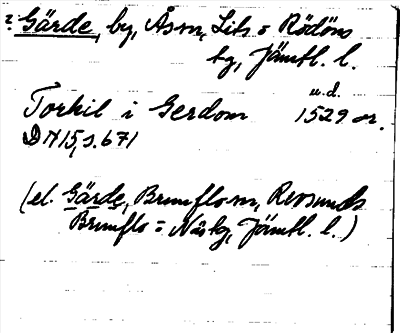 ? Gärde, by, Åsn, Lits o Rödöns
tg, Jämtl. l.
u.d.
Torkil i Gerdom 1529 or.
DN 15, s. 671
(el. Gärde, Brunflo sn, Revsunds
Brunflo = Näs tg, Jämtl. l.)